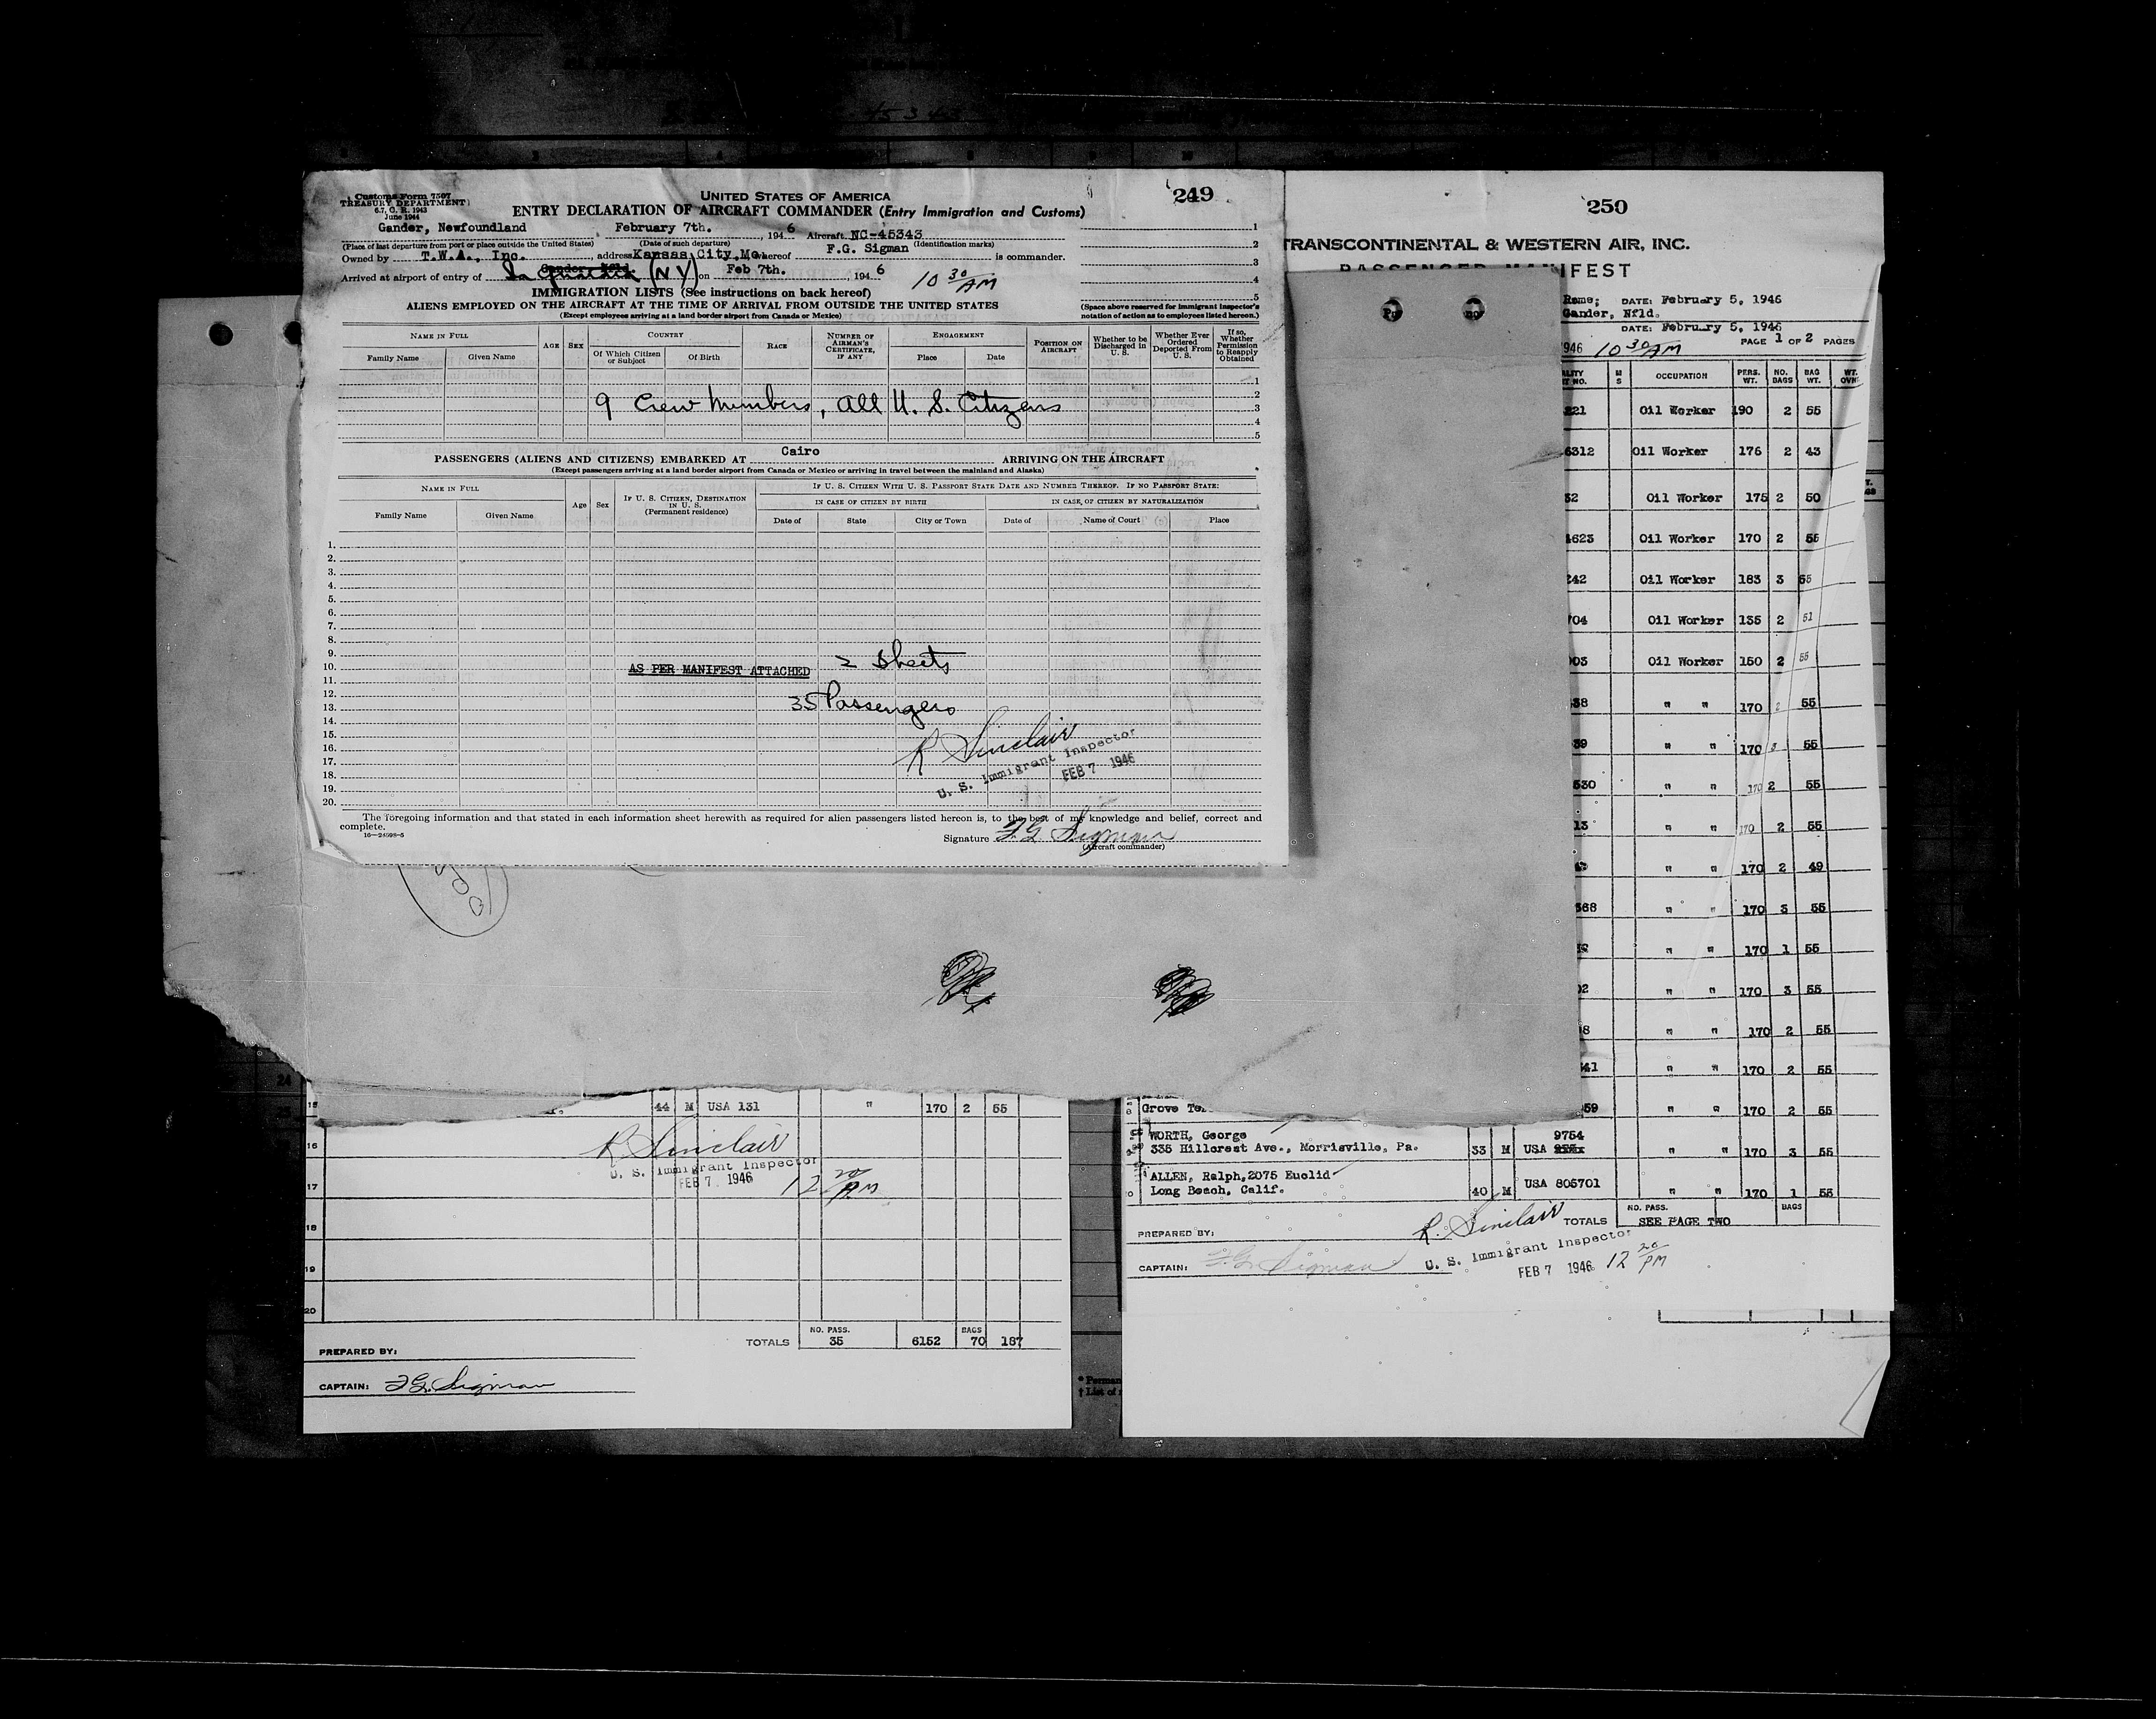 Customs Form 7507
TREASURY DEPARTMENT
6.7, C. R. 1943
June 1944
UNITED STATES OF AMERICA
249
ENTRY DECLARATION OF AIRCRAFT COMMANDER (Entry Immigration and Customs)
Gander, Newfoundland February 7th. , 194 6 Aircraft NC-45343
(Place of last departure from port or place outside the United States) (Date of such departure) (Identification marks)
Owned by T.W.A., Inc. , address Kansas City, Mo. whereof F.G. Sigman is commander.
Arrived at airport of entry of La Guardia (NY) on Feb 7th. , 194 6 10 30 AM
1
2
3
4
5
IMMIGRATION LISTS (See instructions on back hereof)
ALIENS EMPLOYED ON THE AIRCRAFT AT THE TIME OF ARRIVAL FROM OUTSIDE THE UNITED STATES
(Except employees arriving at a land border airport from Canada or Mexico)
(Space above reserved for immigrant inspector's notation of action as to employees listed hereon.)
NAME IN FULL
Family Name Given Name
AGE SEX
COUNTRY
Of Which Citizen or Subject Of Birth
RACE
NUMBER OF AIRMAN'S CERTIFICATE, IF ANY
ENGAGEMENT
Place Date
POSITION ON AIRCRAFT
Whether to be Discharged in U. S.
Whether Ever Ordered Deported From U. S.
If so, Whether Permission to Reapply Obtained
1
2
3
4
5
9 Crew Members, All U. S. Citizens
PASSENGERS (ALIENS AND CITIZENS) EMBARKED AT Cairo ARRIVING ON THE AIRCRAFT
(Except passengers arriving at a land border airport from Canada or Mexico or arriving in travel between the mainland and Alaska)
NAME IN FULL
Family Name Given Name
Age Sex
IF U. S. CITIZEN, DESTINATION IN U. S. (Permanent residence)
IF U. S. CITIZEN WITH U. S. PASSPORT STATE DATE AND NUMBER THEREOF. IF NO PASSPORT STATE:
IN CASE OF CITIZEN BY BIRTH IN CASE OF CITIZEN BY NATURALIZATION
Date of State City or Town Date of Name of Court Place
1.
2.
3.
4.
5.
6.
7.
8.
9.
10.
11.
12.
13.
14.
15.
16.
17.
18.
19.
20.
AS PER MANIFEST ATTACHED 2 Sheets
35 Passengers
R Sinclair
U. S. Immigrant Inspector
FEB 7 1946
The foregoing information and that stated in each information sheet herewith as required for alien passengers listed hereon is, to the best of my knowledge and belief, correct and
complete.
16—24598-5
Signature F.G. Sigman
(Aircraft commander)
250
TRANSCONTINENTAL & WESTERN AIR, INC.
PASSENGER MANIFEST
Rome; DATE: February 5, 1946
Gander, Nfld.
DATE: February 5, 1946
1946 10 30 AM PAGE 1 OF 2 PAGES
M S OCCUPATION PERS. WT. NO. BAGS BAG WT. WT. OVN
221 Oil Worker 190 2 55
6312 Oil Worker 176 2 43
52 Oil Worker 175 2 50
1623 Oil Worker 170 2 55
242 Oil Worker 183 3 55
704 Oil Worker 135 2 51
003 Oil Worker 150 2 55
538 " " 170 2 55
39 " " 170 3 55
530 " " 170 2 55
13 " " 170 2 55
" " 170 2 49
568 " " 170 3 55
" " 170 1 55
02 " " 170 3 55
8 " " 170 2 55
41 " " 170 2 55
Grove 59 " " 170 2 55
WORTH, George 9754
335 Hillcrest Ave., Morrisville, Pa. 33 M USA " " 170 3 55
ALLEN, Ralph, 2075 Euclid
Long Beach, Calif. 40 M USA 805701 " " 170 1 55
PREPARED BY: R. Sinclair TOTALS NO. PASS. SEE PAGE TWO BAGS
CAPTAIN: F.G. Sigman
U. S. Immigrant Inspector
FEB 7 1946 12 20 PM
15 44 M USA 131 " 170 2 55
16
R Sinclair
U. S. Immigrant Inspector
FEB 7 1946 12 20 PM
17
18
19
20
TOTALS NO. PASS. 35 6152 BAGS 70 187
PREPARED BY:
CAPTAIN: F.G. Sigman
* Perman
† List of
24